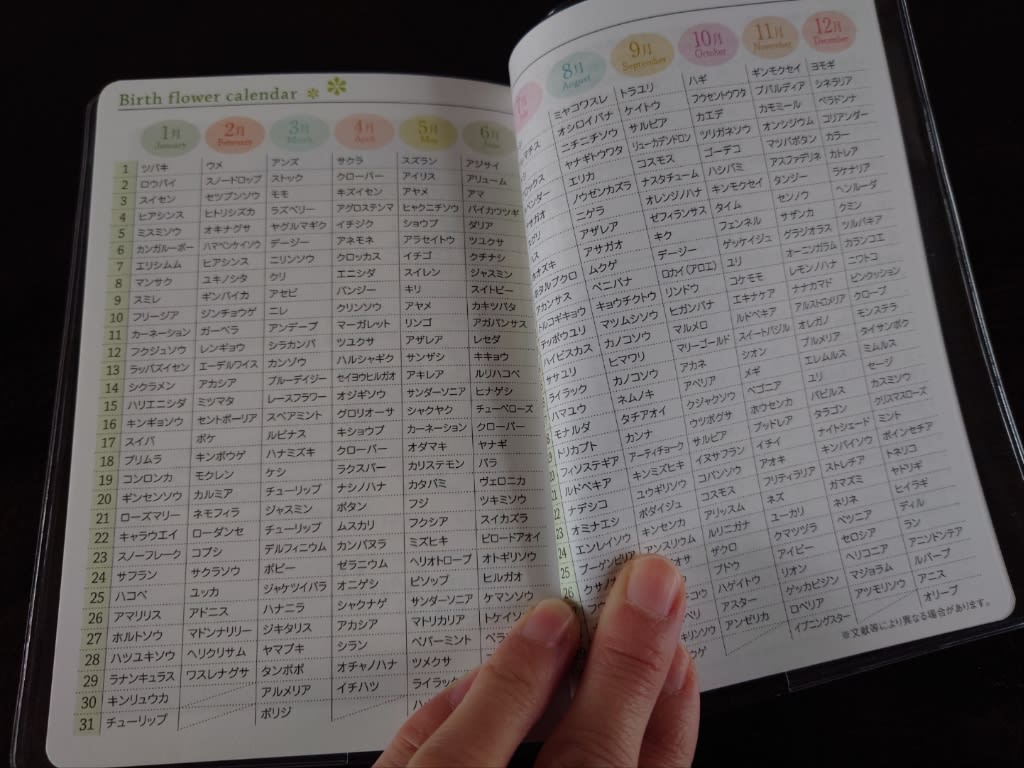 Birth flower calendar
1月 2月 3月 4月 5月 6月
January February March April May June
1 ツバキ ウメ アンズ サクラ スズラン アジサイ
2 ロウバイ スノードロップ ストック クローバー アイリス アリューム
3 スイセン セツブンソウ モモ キズイセン アヤメ アマ
4 ヒアシンス ヒトリシズカ ラズベリー アグロステンマ ヒャクニチソウ バイカウツギ
5 ミスミソウ オキナグサ ヤグルマギク イチジク ショウブ ダリア
6 カンガルーポー ハマベンケイソウ デージー アネモネ アラセイトウ ツユクサ
7 エリシムム ヒアシンス ニリンソウ クロッカス イチゴ クチナシ
8 マンサク ユキノシタ クリ エニシダ スイレン ジャスミン
9 スミレ ギンバイカ アセビ パンジー キリ スイトピー
10 フリージア ジンチョウゲ ニレ クリンソウ アヤメ カキツバタ
11 カーネーション ガーベラ アンデープ マーガレット リンゴ アガパンサス
12 フクジュソウ レンギョウ シラカンバ ツユクサ アザレア レセダ
13 ラッパズイセン エーデルワイス カンゾウ ハルシャギク サンザシ キキョウ
14 シクラメン アカシア ブルーデイジー セイヨウヒルガオ アキレア ルリハコベ
15 ハリエニシダ ミツマタ レースフラワー オジギソウ サンダーソニア ヒナゲシ
16 キンギョソウ セントポーリア スペアミント グロリオーサ シャクヤク チューベローズ
17 スイバ ボケ ルピナス キショウブ カーネーション クローバー
18 プリムラ キンポウゲ ハナミズキ クローバー オダマキ ヤナギ
19 コンロンカ モクレン ケシ ラクスパー カリステモン バラ
20 ギンセンソウ カルミア チューリップ ナシノハナ カタバミ ヴェロニカ
21 ローズマリー ネモフィラ ジャスミン ボタン フジ ツキミソウ
22 キャラウエイ ローダンセ チューリップ ムスカリ フクシア スイカズラ
23 スノーフレーク コブシ デルフィニウム カンパヌラ ミズヒキ ビロードアオイ
24 サフラン サクラソウ ポピー ゼラニウム ヘリオトロープ オトギリソウ
25 ハコベ ユッカ ジャケツイバラ オニゲシ ビソップ ヒルガオ
26 アマリリス アドニス ハナニラ シャクナゲ サンダーソニア ケマンソウ
27 ホルトソウ マドンナリリー ジキタリス アカシア マトリカリア トケイソ
28 ハツユキソウ ヘリクリサム ヤマブキ シラン ペパーミント
29 ラナンキュラス ワスレナグサ タンポポ オチャノハナ ツメクサ
30 キンリュウカ アルメリア イチハツ ライラック
31 チューリップ ボリジ
8月 9月 10月 11月 12月
August September October November December
ミヤコワスレ トラユリ ハギ ギンモクセイ ヨモギ
オシロイバナ ケイトウ フウセントウワタ ブバルディア シネラリア
ニチニチソウ サルビア カエデ カモミール ベラドンナ
ヤナギトウワタ リューカデンドロン ツリガネソウ オンシジウム コリアンダー
エリカ コスモス ゴーデコ マツバボタン カラー
ノウゼンカズラ ナスタチューム ハシバミ アスファデネリ カトレア
ニゲラ オレンジノハナ キンモクセイ タンジー ラケナリア
アザレア ゼフィランサス タイム センノウ ヘンルーダ
アサガオ キク フェンネル サザンカ クミン
ムクゲ デージー ゲッケイジュ グラジオラス ツルバキア
ベニバナ ロカイ(アロエ) ユリ オーニソガラム カランコエ
キョウチクトウ リンドウ コケモモ レモンノハナ ニワトコ
マツムシソウ ヒガンバナ エキナケア ナナカマド ピンクッション
カノコソウ マルメロ ルドベキア アルストロメリア クローブ
ハイビスカス ヒマワリ マリーゴールド スイートバジル オレガノ モンステラ
ササユリ カノコソウ アカネ シオン プルメリア タイサンボク
ライラック ネムノキ アベリア メギ エレムルス ミムルス
ハマユウ タチアオイ クジャクソウ ベゴニア ユリ セージ
モナルダ カンナ ウリボグサ ホウセンカ パピルス カスミソウ
トリカブト アーティチョーク サルビア ブッドレア タラゴン クリスマスローズ
フィソステギア キンミズヒキ イヌサフラン イチイ ナイトシェード ミント
ルドベキア ユウギリソウ コバンソウ アオキ キンバイソウ ポインセチア
ナデシコ ボダイジュ コスモス アリティラリア ストレチア トネリコ
オミナエシ キンセンカ アリッスム ネズ ガマズミ ヤドリギ
エンレイソウ アンスリウム ルリニガナ ユーカリ ネリネ ヒイラギ
ブーゲンビリア ザクロ クマツヅラ ベツニア ディル
ブドウ アイビー セロシア ラン
ハゲイトウ リオン ヘリコニア アニソドンテア
アスター ゲッカビジン マジョラム ルバーブ
アンゼリカ ロベリア アツモリソウ アニス
イブニングスター オリーブ
※文献等により異なる場合があります。